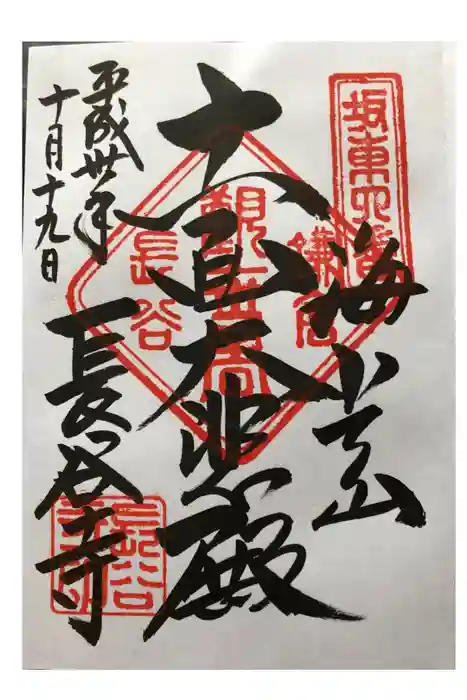 坂東四番
海光山
鎌倉
観世音
長谷
十一面大悲殿
平成卅年
十月十九日
長谷寺
長谷
寺印